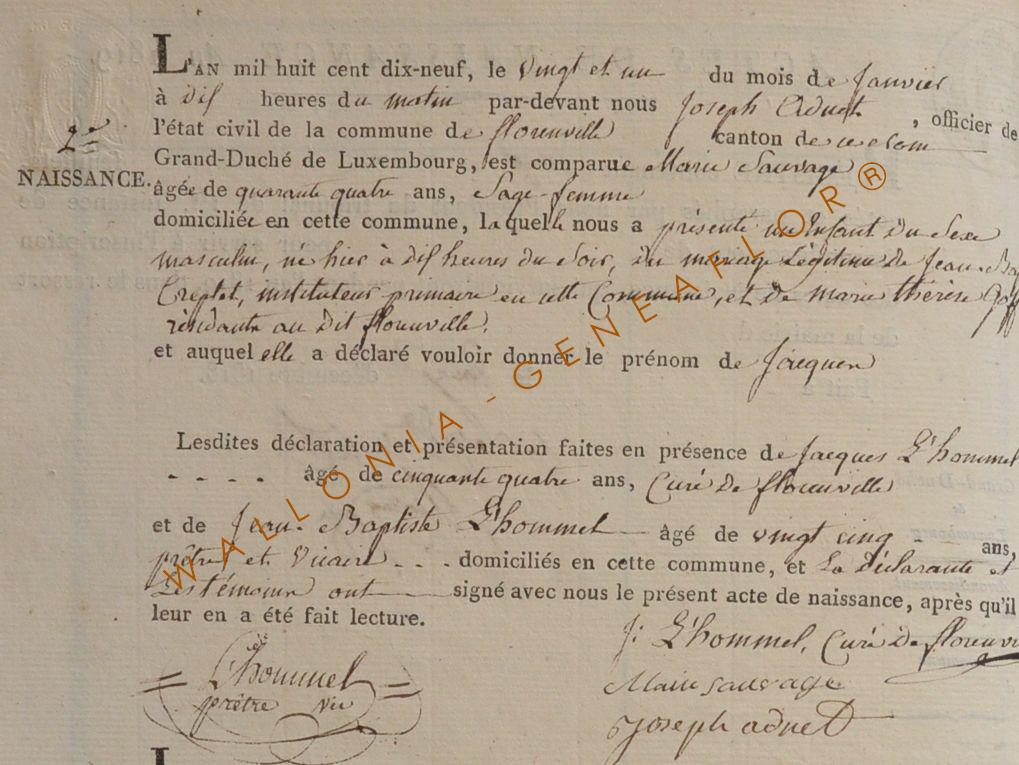 L'AN mil huit cent dix-neuf, le vingt et un du mois de Janvier
à dix heures du matin par-devant nous Joseph Adnet, officier de
l'état civil de la commune de florenville canton de ce nom
2e
NAISSANCE.
Grand-Duché de Luxembourg, est comparue Marie Sauvage
âgée de quarante quatre ans, Sage-femme
domiciliée en cette commune, laquelle nous a présenté un Enfant du Sexe
masculin, né hier à dix heures du Soir, du mariage Légitime de Jean-Ba
instituteur primaire en cette Commune, et de marie thérèse
résidante au dit florenville.
et auquel elle a déclaré vouloir donner le prénom de Jacques
Lesdites déclaration et présentation faites en présence de Jacques L'hommel
- - - - âgé de cinquante quatre ans, Curé de florenville
et de Jean-Baptiste L'hommel âgé de vingt cinq ans,
prêtre et Vicaire - - - domiciliés en cette commune, et La Déclarante et
Les témoins ont signé avec nous le présent acte de naissance, après qu'il
leur en a été fait lecture.
J. L'hommel, Curé de florenvi
L'hommel
prêtre vic
Marie sauvage
Joseph adnet
WALLONIA-GENEAFLOR®